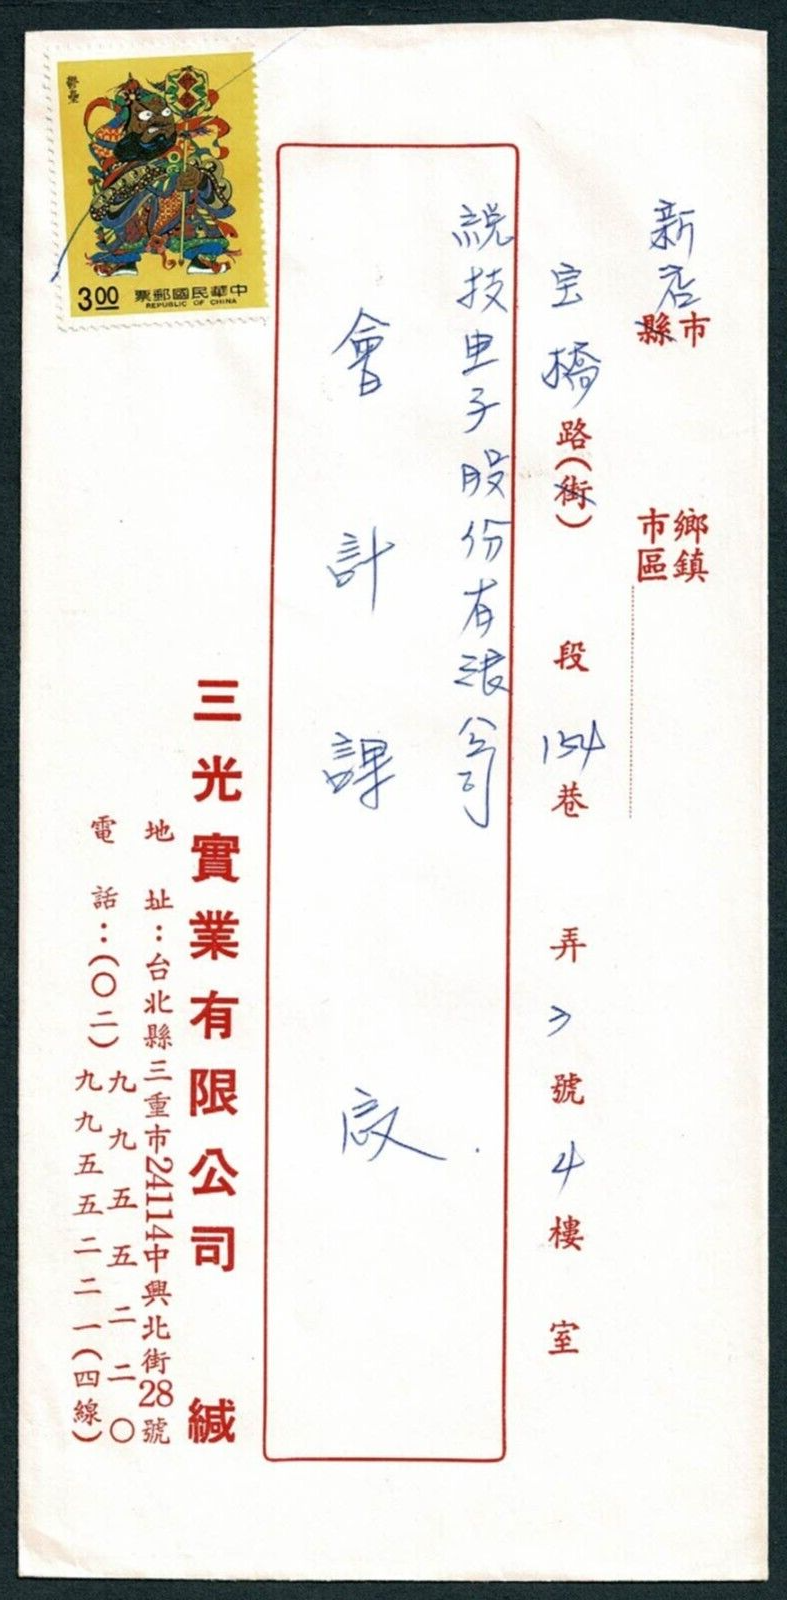 新店
縣市
鄉鎮
市區
宝橋路(街) 段154巷 弄3號4樓 室
銳技电子股份有限公司
會計課 啟
三光實業有限公司 緘
地址:台北縣三重市24114中興北街28號
電話:(〇二)九九五五二二〇
九九五五二二一(四線)
鬱壘
3.00
中華民國郵票
REPUBLIC OF CHINA